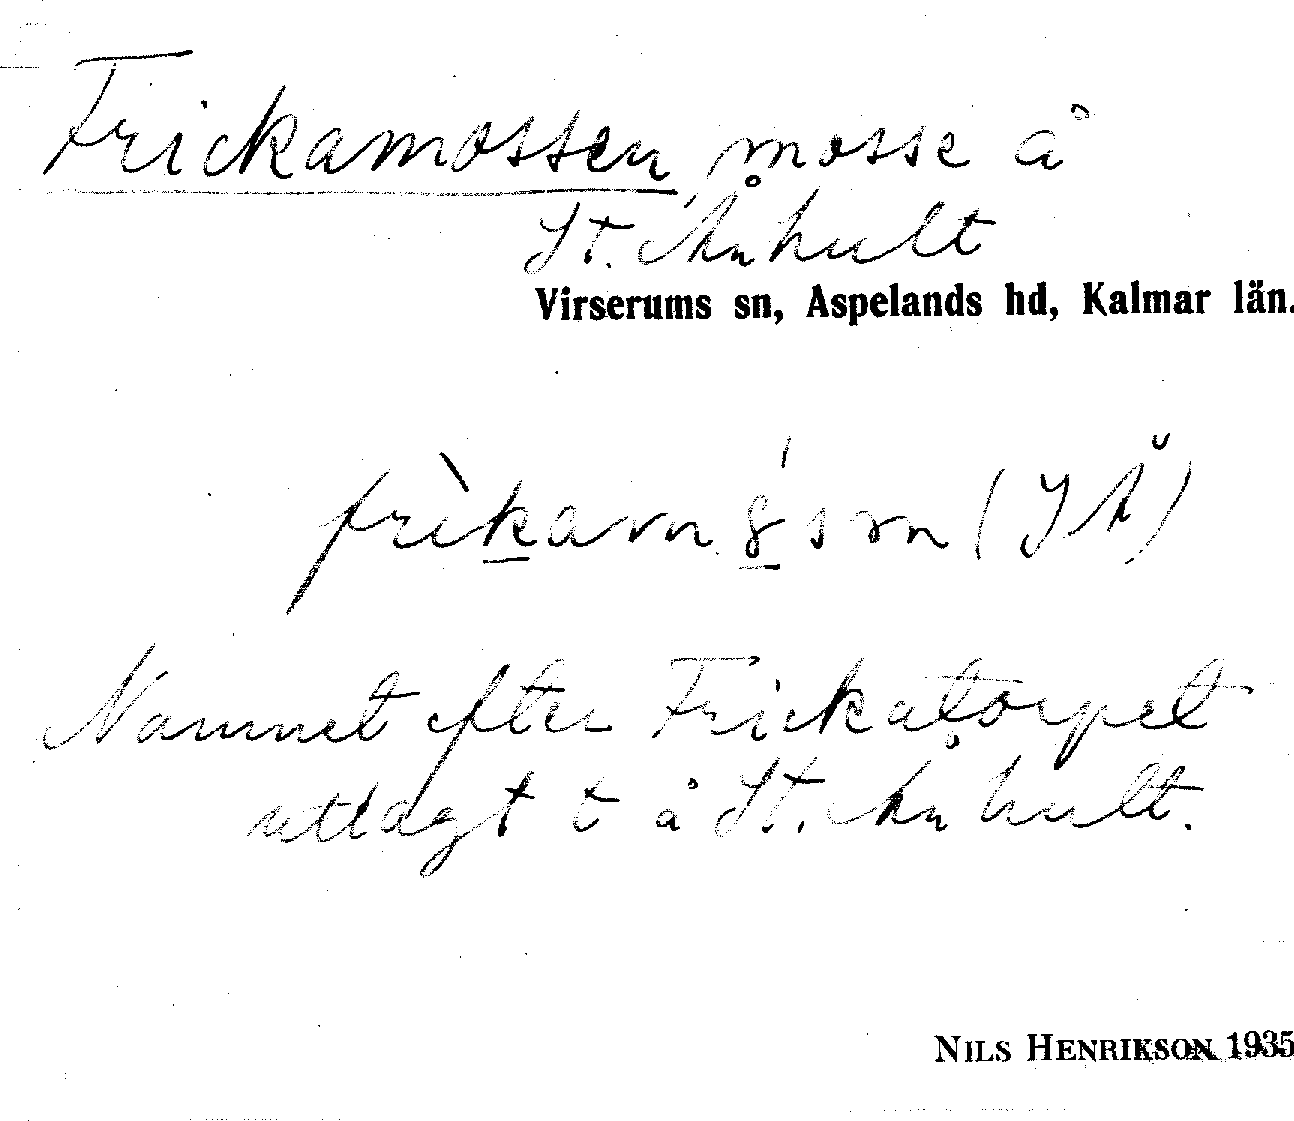 Frickamossen, mosse å
St. Ånhult
Virserums sn, Aspelands hd, Kalmar län.
(JÅ)
Namnet efter Frickatorpet
utlagt t å St. Ånhult.
NILS HENRIKSON 1935